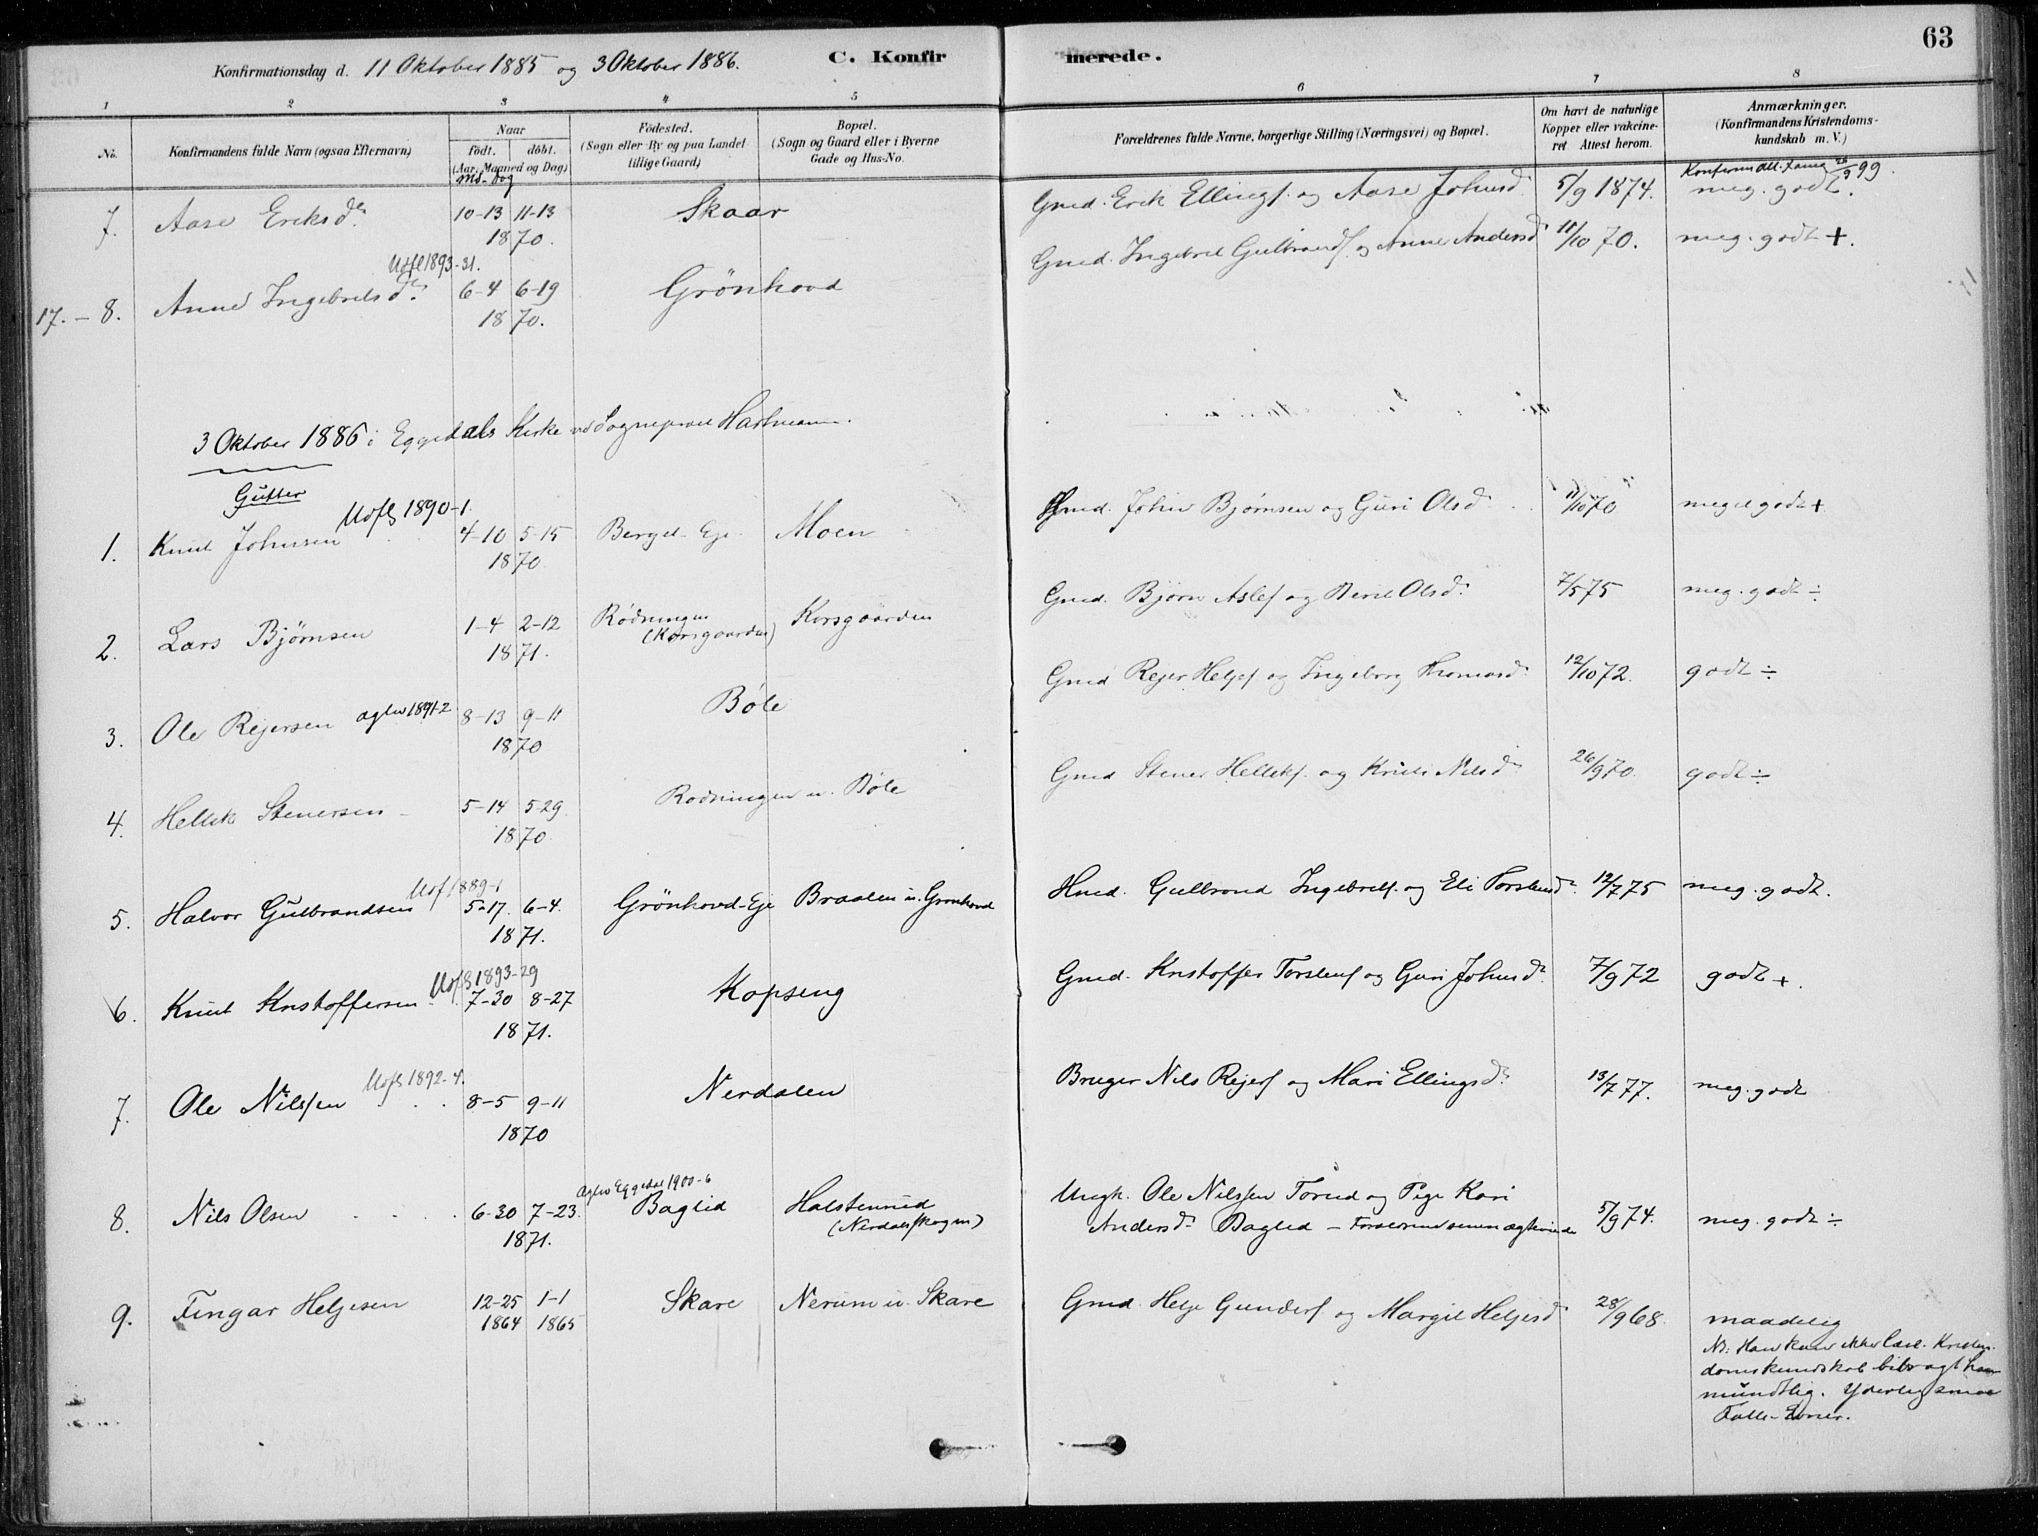 63
Konfirmationsdag d. 11 Oktober 1885 og 3 Oktober 1886. C. Konfirmerede.
1 2 3 4 5 6 7 8
No. Konfirmandens fulde Navn (ogsaa Efternavn) Naar födt. döbt. (Aar, Maaned og Dag) Md. Dag
Födested. (Sogn eller By og paa Landet tillige Gaard)
Bopæl. (Sogn og Gaard eller i Byerne Gade og Hus-No.
Forældrenes fulde Navne, borgerlige Stilling (Næringsvei) og Bopæl.
Om havt de naturlige Kopper eller vakcineret. Attest herom.
Anmærkninger. (Konfirmandens Kristendomskundskab m. V.)
7. Aase Eriksdr 10-13 11-13 1870. Skaar Gmd. Erik Ellings. og Aase Johnsdr 5/9 1874. meg. godt.
Udfl 1893-31.
17. - 8. Anne Ingebretsdr 6-4 6-19 1870. Grönhovd Gmd. Ingebret Gulbrands. og Anne Andersdr 11/10 70. meg. godt +.
3 Oktober 1886 i Eggedals Kirke ved Sogneprest Hartmann.
Gutter
Udfl 1890-1.
1. Knut Johnsen 4-10 5-15 1870 Berget Eje Moen Gmd. John Bjørnsen og Guri Olsdr 11/10 70 meget godt +
2. Lars Bjørnsen 1-4 2-12 1871. Rödningen (Korsgaarden) Korsgaarden Gmd. Bjørn Aslefs. og Berit Olsdr 7/5 75 meg. godt ÷
3. Ole Rejersen 1891-2 8-13 9-11 1870 Böle Gmd Rejer Heljes. og Ingeborg Thomasdr 12/10 72. godt ÷
4. Hellek Stenersen 5-14 5-29 1870 Rodningen u. Böle Gmd Stener Helleks. og Kristi Nilsdr 26/9 70. godt ÷
Udf. 1889-1
5. Halvor Gulbrandsen 5-17. 6-4. 1871. Grönhovd-Eje Braaten u. Gronhovd Hmd. Gulbrand Ingebrets. og Eli Torstensdr 12/7 75 meg. godt.
Udfl 1893-29
6. Knut Kristoffersen 7-30 8-27 1871. Kopseng Gmd. Kristoffer Torstens. og Guri Johnsdr 7/9 72 godt +.
Udfl 1892-4.
7. Ole Nilssen 8-5 9-11 1870 Nerdalen Bruger Nils Rejers. og Mari Ellingsdr 13/7 77. meg. godt
Eggedal 1900-6
8. Nils Olsen 6-30 7-23. 1871. Baglid Halstenrud (Nerdalsskogen) Ungk. Ole Nilssen Torud og Pige Kari
Andersdr Baglid 5/9 74. meg. godt ÷
9. Fingar Heljesen 12-25 1864 1-1 1865 Skare Nerum u. Skare Gmd. Helje Gunders. og Margit Heljesdr 28/9 68. maadelig
NB: Han kan ikke læse. Kristendomskundskab bibragt ham
mundtlig. Yderlig smaa